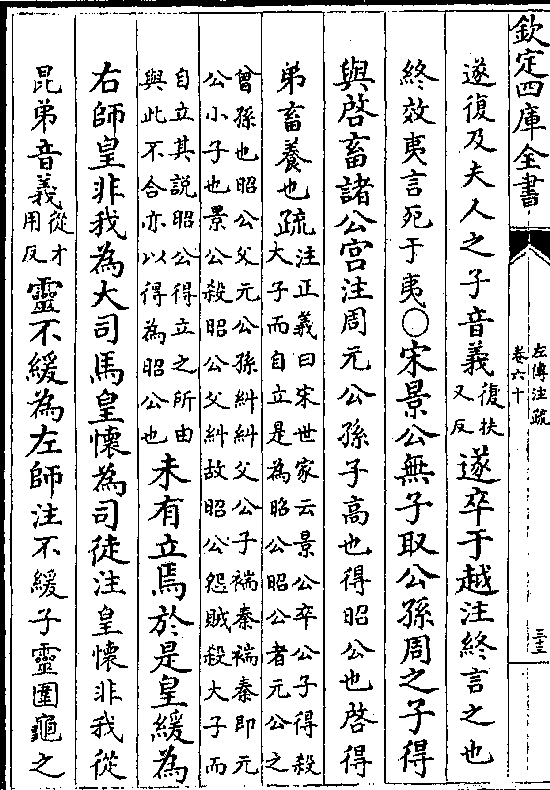 欽定四庫全書
左傳注疏
卷六十
三三
遂復及夫人之子音義復扶
又反遂卒于越注終言之也
終效夷言死于夷○宋景公無子取公孫周之子得
與啓畜諸公宮注周元公孫子高也得昭公也啓得
弟畜養也疏注正義曰宋世家云景公卒公子得殺
大子而自立是為昭公昭公者元公之
曾孫也昭公父元公孫糾糾父公子褍秦褍秦即元
公小子也景公殺昭公父糾故昭公怨賊殺大子而
自立其說昭公得立之所由
與此不合亦以得為昭公也未有立焉於是皇緩為
右師皇非我為大司馬皇懷為司徒注皇懷非我從
昆弟音義從才
用反靈不緩為左師注不緩子靈圍龜之